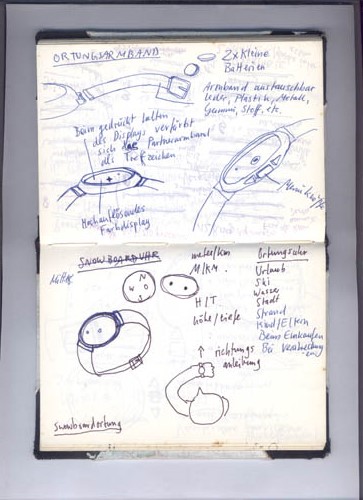 ORTUNGSARMBAND
2x Kleine
Batterien
Armband austauschbar
Leder, Plastik, Metall,
Gummi, Stoff, etc.
Beim gedrückt halten
des Displays verfärbt
sich das Partnerarmband
als Treffzeichen
Hochauflösendes
Farbdisplay
SNOWBOARDUHR
meter/km
M/KM.
H/T
höhe/tiefe
richtungs
anleitung
N
W O
S
Ortungsuhr
Urlaub
Ski
Wasser
Stadt
Strand
Kind/Eltern
Beim Einkaufen
Bei